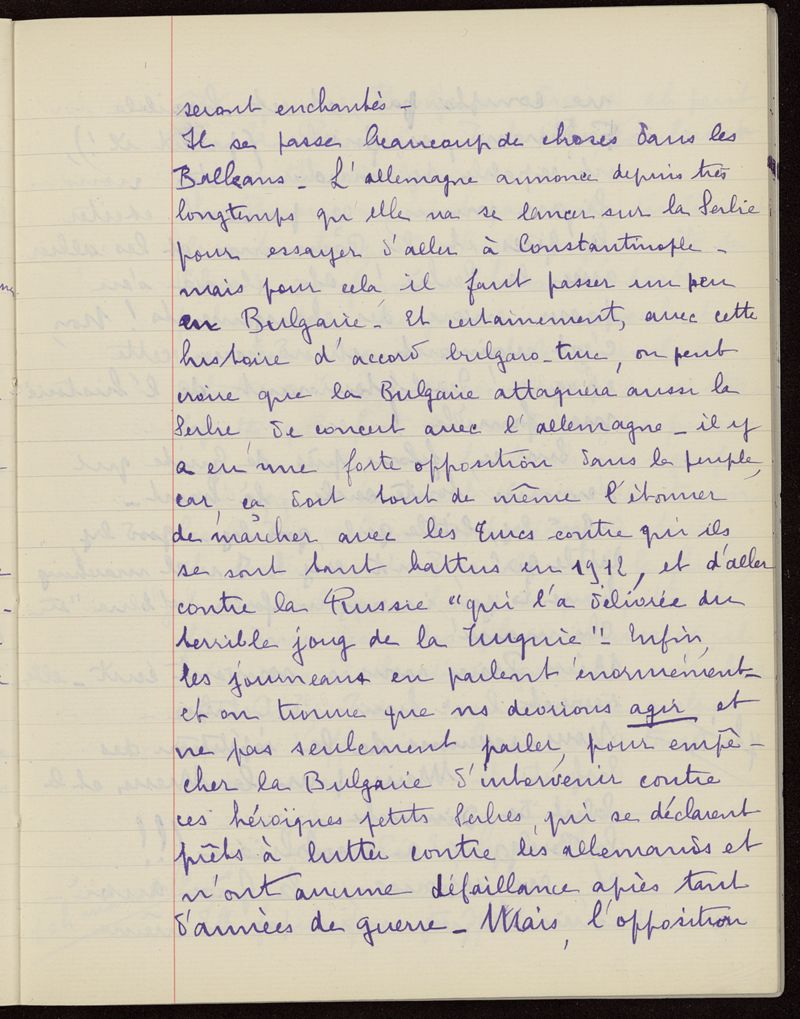 seront enchantés –
Il se passe beaucoup de choses dans les
Balkans – L'allemagne annonce depuis très
longtemps qu'elle va se lancer sur la Serbie
pour essayer d'aller à Constantinople –
mais pour cela il faut passer un peu
en Bulgarie – Et certainement, avec cette
histoire d'accord bulgaro-turc, on peut
croire que la Bulgarie attaquera aussi la
Serbie, de concert avec l'allemagne – il y
a eu une forte opposition dans le peuple,
car, ça doit tout de même l'étonner
de marcher avec les Turcs contre qui ils
se sont tant battus en 1912, et d'aller
contre la Russie "qui l'a délivrée du
terrible joug de la Turquie" – Enfin,
les journeaux en parlent énormément –
et on trouve que ns devrions agir et
ne pas seulement parler, pour empê-
cher la Bulgarie d'intervenir contre
ces héroïques petits Serbes, qui se déclarent
prêts à lutter contre les allemands et
n'ont aucune défaillance après tant
d'années de guerre – Mais, l'opposition